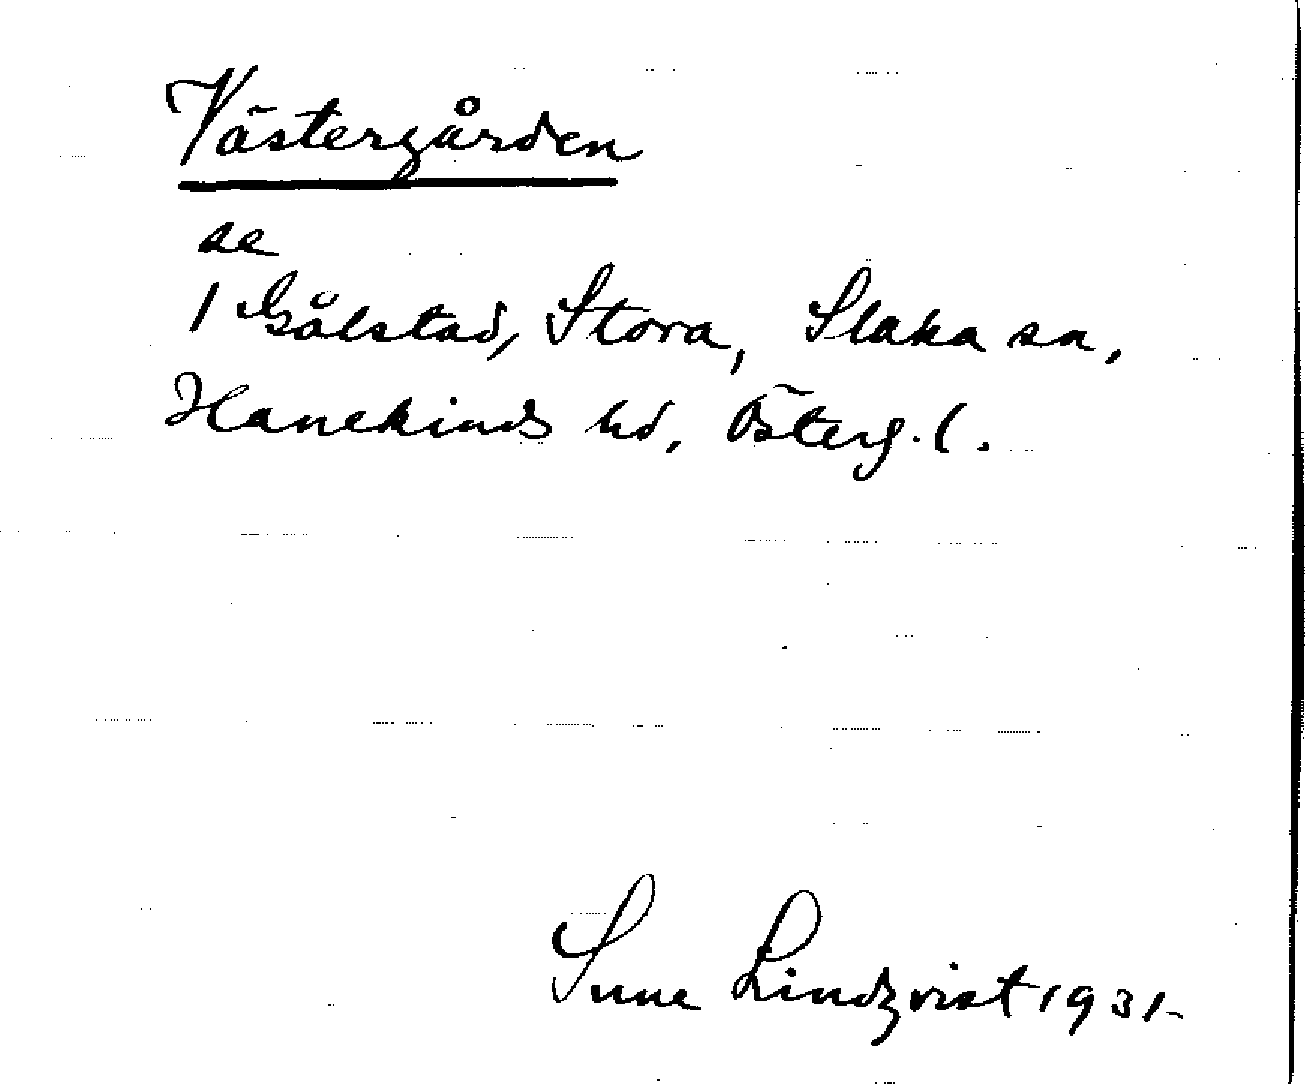 Västergården
se
1 Gålstad, Stora, Slaka sn,
Hanekinds hd, Österg. l.
Sune Lindqvist 1931.